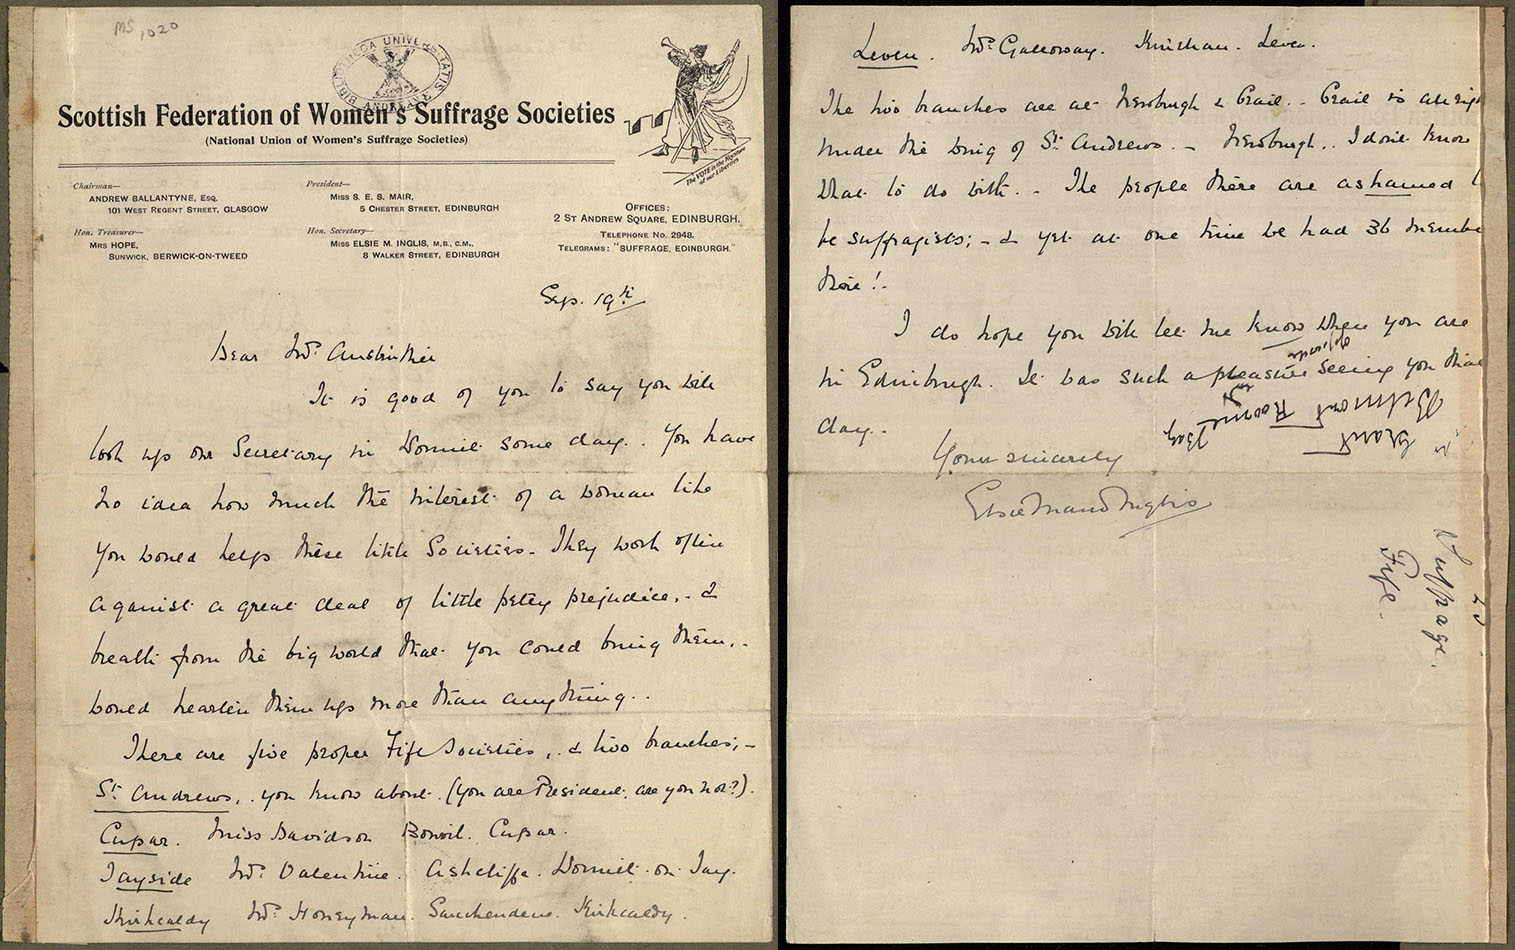 MS 1020
BIBLIOTHECA UNIVERSITATIS ANDREAE
Scottish Federation of Women's Suffrage Societies
(National Union of Women's Suffrage Societies)
The VOTE is the Keystone
of our Liberties
Chairman—
ANDREW BALLANTYNE, Esq.
101 WEST REGENT STREET, GLASGOW
Hon. Treasurer—
MRS HOPE,
SUNWICK, BERWICK-ON-TWEED
President—
MISS S. E. S. MAIR,
5 CHESTER STREET, EDINBURGH
Hon. Secretary—
MISS ELSIE M. INGLIS, M.B., C.M.,
8 WALKER STREET, EDINBURGH
OFFICES:
2 ST ANDREW SQUARE, EDINBURGH.
TELEPHONE No. 2948.
TELEGRAMS: "SUFFRAGE, EDINBURGH."
Sep. 19th
Dear Mrs
It is good of you to say you will
look up our Secretary in Wormit some day. You have
no idea how much the interest of a woman like
you would help these little Societies- They work often
against a great deal of little petty prejudice, - &
breath from the big world that you could bring them, -
would hearten them up more than anything..
There are five proper Fife Societies, . & two branches; -
St Andrews, . you know about. (You are President, are you not?).
Cupar. Miss Davidson Cupar.
Tayside Mrs Valentine. Ashcliffe. Wormit-on-Tay.
Kirkcaldy Mrs Honeyman. Kirkcaldy.
Leven. Mrs Galloway. Leven.
The two branches are at Newburgh & Crail. - Crail is
under the wing of St Andrews. - Newburgh. . I don't know
what to do with. - The people there are ashamed t
be suffragists; - & yet at one time we had 36 membe
there! -
I do hope you will let me know when you are
in Edinburgh. It was such a pleasure seeing you that
day.
Yours sincerely
Elsie Maud Inglis
Belmont
Grant
Suffrage.
Fife.